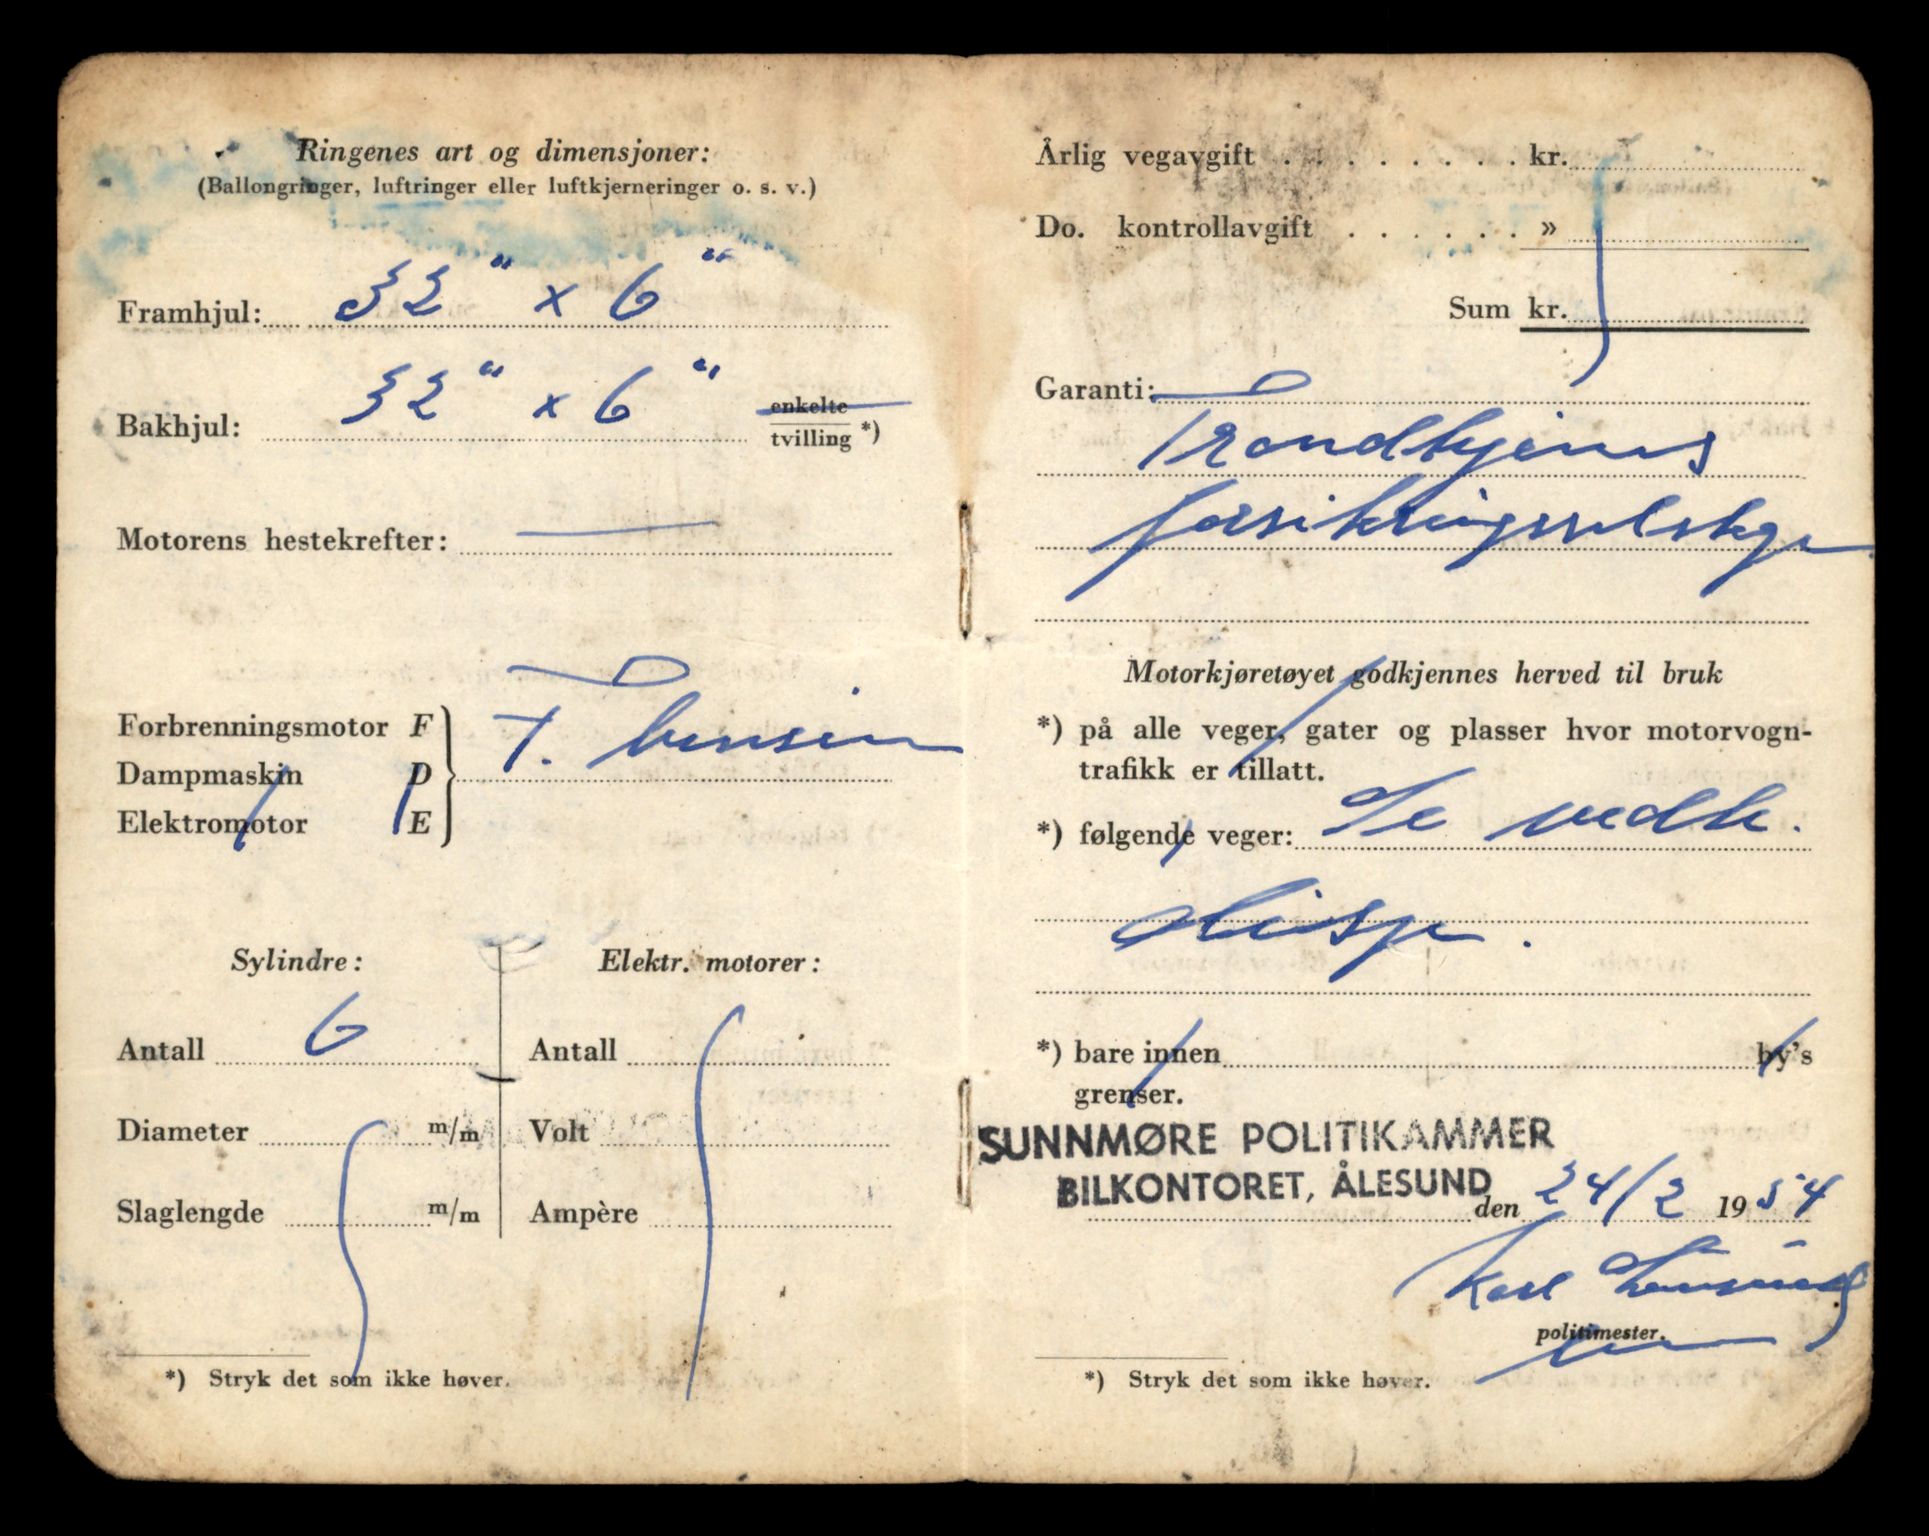 Ringenes art og dimensjoner:
(Ballongringer, luftringer eller luftkjerneringer o. s. v.)
Framhjul: 32" x 6"
Bakhjul: 32" x 6" enkelte
tvilling *)
Motorens hestekrefter: —
Forbrenningsmotor F
F. bensin
Dampmaskin D
Elektromotor E
Sylindre:
Antall 6
Diameter m/m
Slaglengde m/m
Elektr. motorer:
Antall
Volt
Ampère
*) Stryk det som ikke høver.
Årlig vegavgift . . . . . . . . . kr.
Do. kontrollavgift . . . . . . »
Sum kr.
Garanti:
Trondhjems
forsikringsselskap
Motorkjøretøyet godkjennes herved til bruk
*) på alle veger, gater og plasser hvor motorvogn-
trafikk er tillatt.
*) følgende veger: Se vedh.
disp.
*) bare innen by's
grenser.
SUNNMØRE POLITIKAMMER
BILKONTORET, ÅLESUND
den 24/2 1954
Karl
politimester.
*) Stryk det som ikke høver.